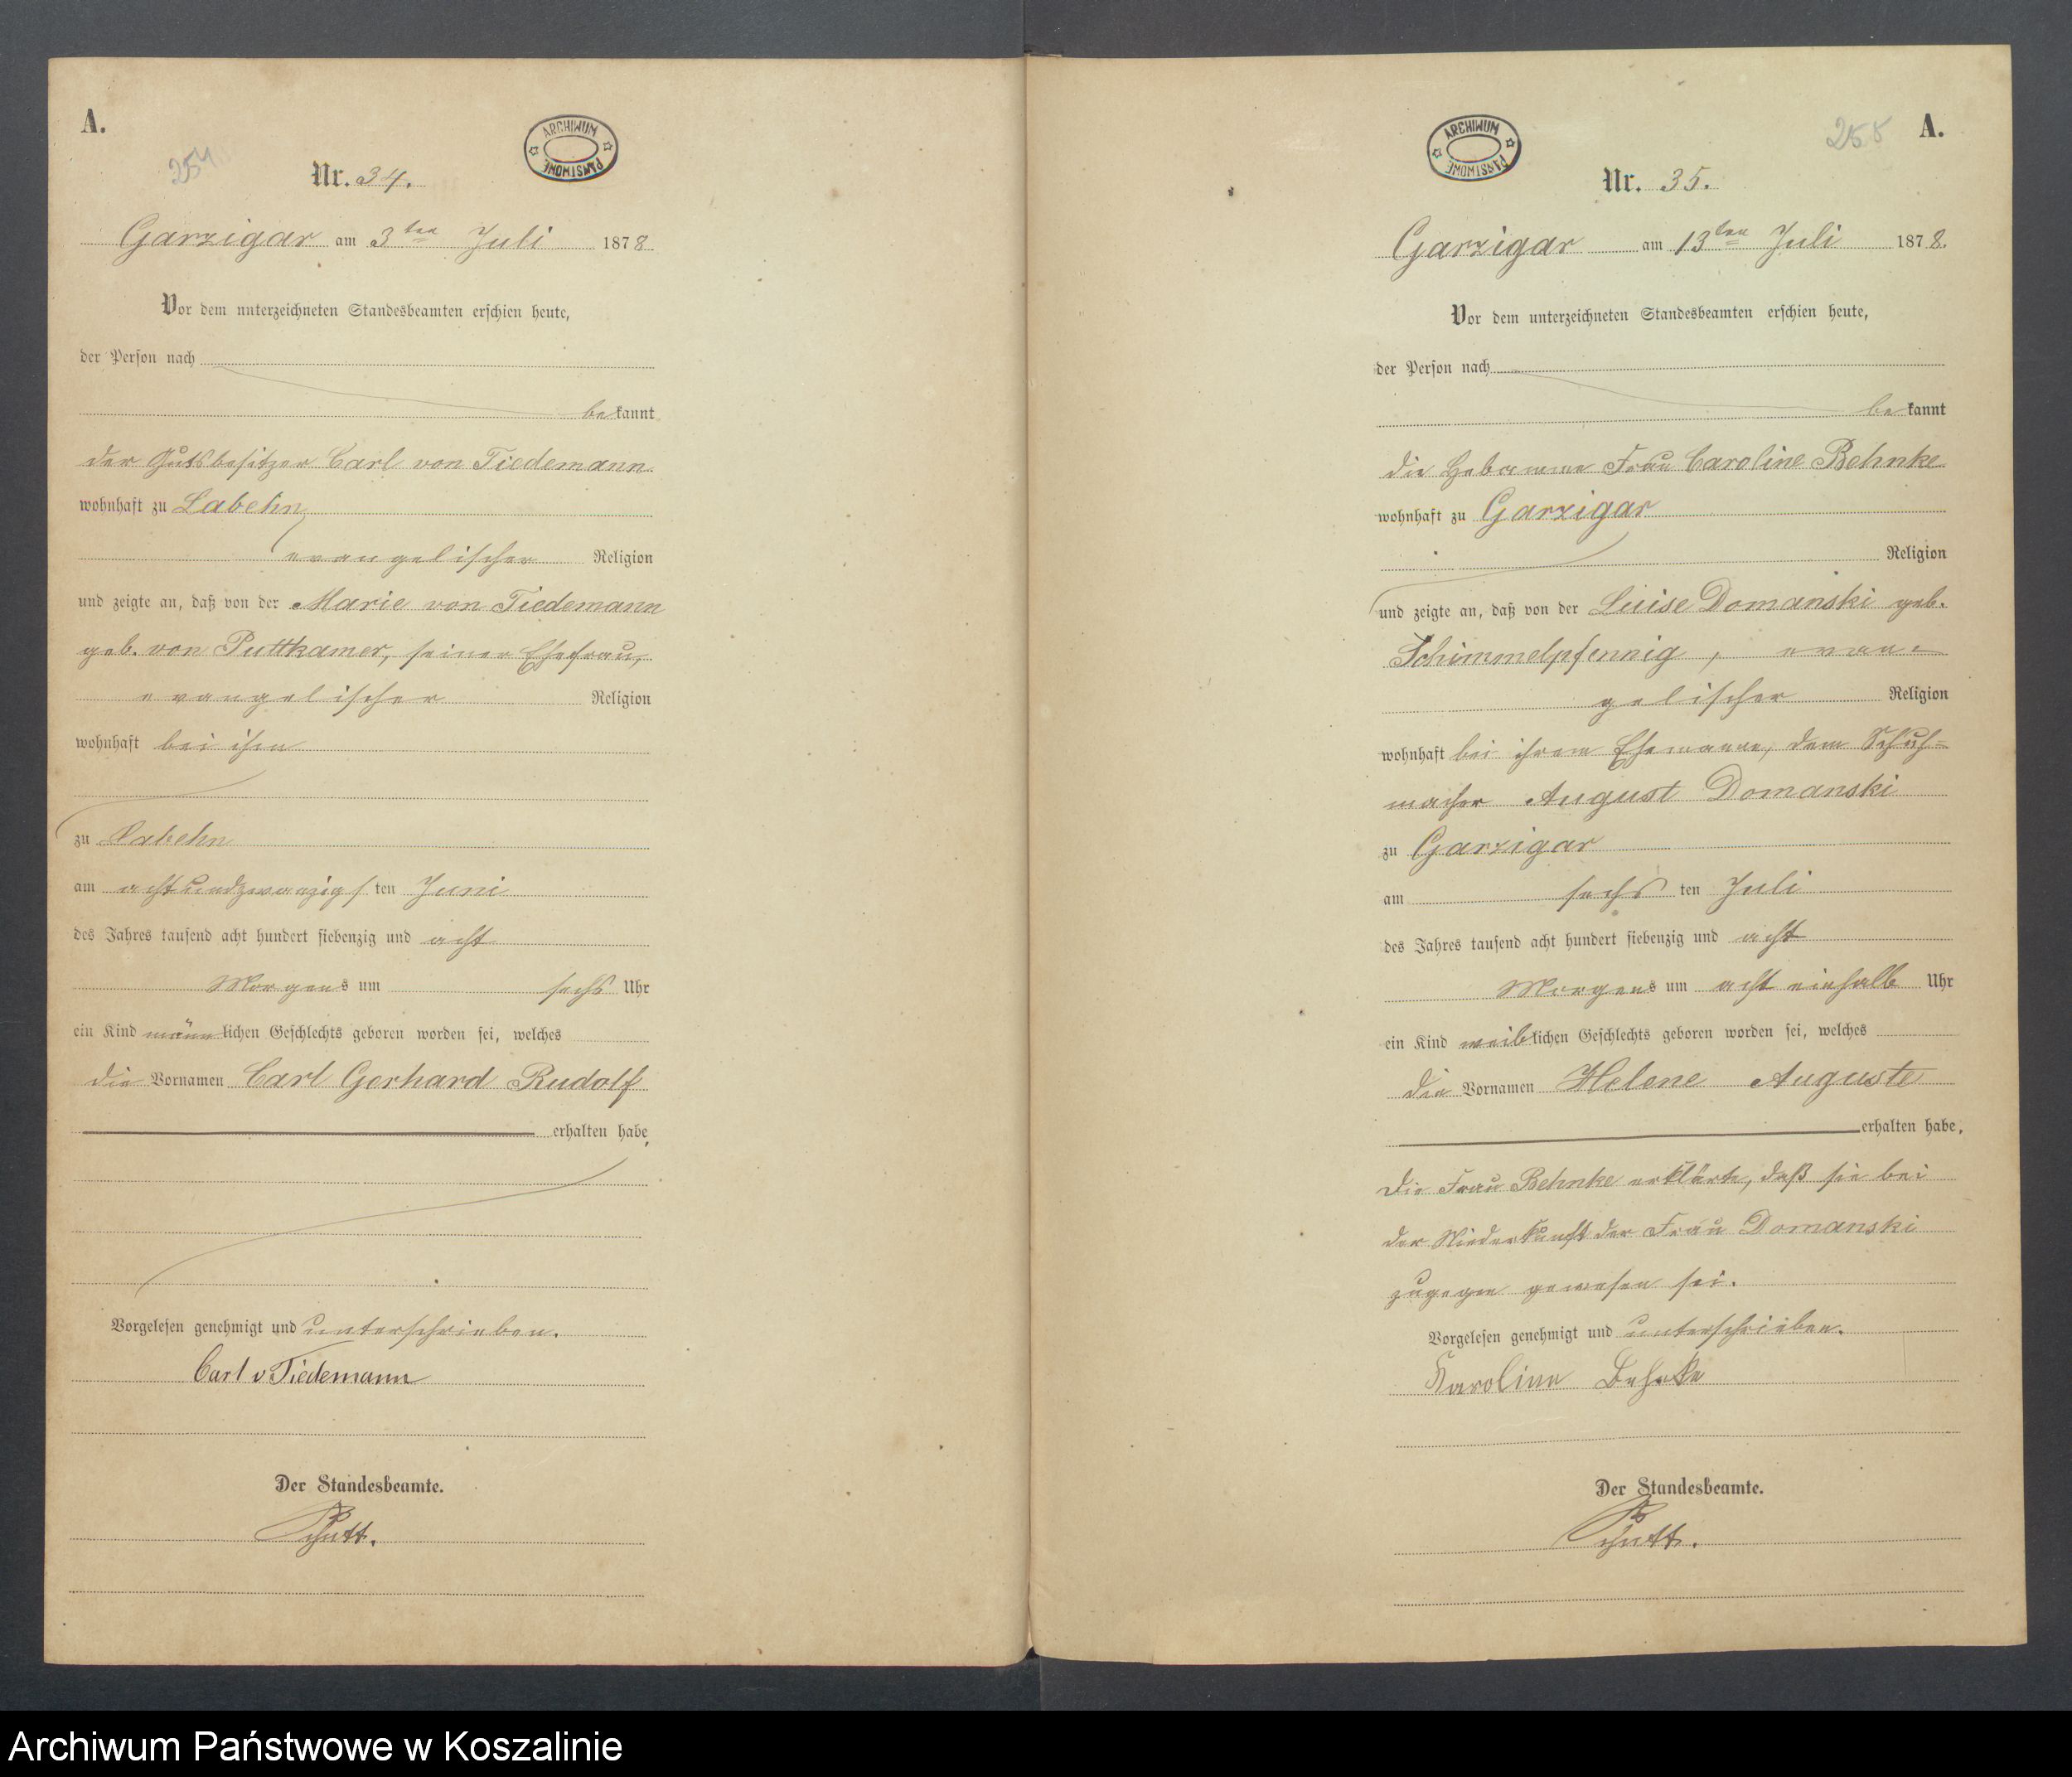 A.
254
Nr. 34.
ARCHIWUM PAŃSTWOWE
Garzigar am 3ten Juli 1878
Vor dem unterzeichneten Standesbeamten erschien heute,
der Person nach
bekannt
der Gutsbesitzer Carl von Tiedemann
wohnhaft zu Labehn
evangelischer Religion
und zeigte an, daß von der Marie von Tiedemann
geb. von Puttkamer, seiner Ehefrau,
evangelischer Religion
wohnhaft bei ihm
zu Labehn
am achtundzwanzigsten Juni
des Jahres tausend acht hundert siebenzig und acht
Morgens um sechs Uhr
ein Kind männlichen Geschlechts geboren worden sei, welches
die Vornamen Carl Gerhard Rudolf
erhalten habe,
Vorgelesen genehmigt und unterschrieben.
Carl v Tiedemann
Der Standesbeamte.
A.
255
Nr. 35.
ARCHIWUM PAŃSTWOWE
Garzigar am 13ten Juli 1878.
Vor dem unterzeichneten Standesbeamten erschien heute,
der Person nach
bekannt
die Hebamme Frau Caroline Behnke
wohnhaft zu Garzigar
Religion
und zeigte an, daß von der Luise Domanski geb.
Schimmelpfennig, evan=
gelischer Religion
wohnhaft bei ihrem Ehemanne, dem Schuh=
macher August Domanski
zu Garzigar
am sechsten Juli
des Jahres tausend acht hundert siebenzig und acht
Morgens um acht einhalb Uhr
ein Kind weiblichen Geschlechts geboren worden sei, welches
die Vornamen Helene Auguste
erhalten habe,
Die Frau Behnke erklärte, daß sie bei
der Niederkunft der Frau Domanski
zugegen gewesen sei.
Vorgelesen genehmigt und unterschrieben.
Karoline Behnke
Der Standesbeamte.
Archiwum Państwowe w Koszalinie